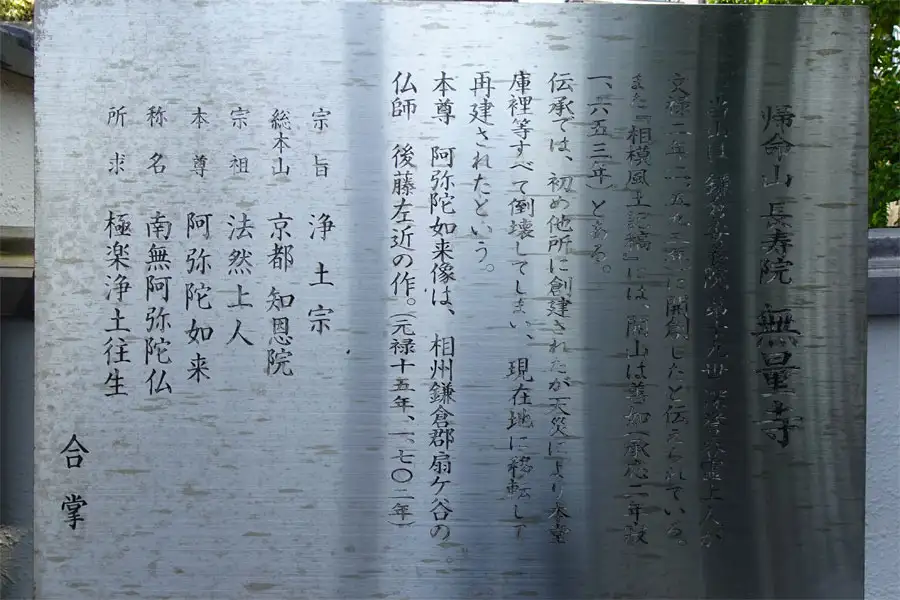 帰命山 長寿院 無量寺
当山は、鎌倉 院 第十九世 上人が
文禄二年(一、五九三年)に開創したと伝えられている。
また『相模風土記稿』には、開山は善如(承応二年寂
一、六五三年)とある。
伝承では、初め他所に創建されたが天災により本堂
庫裡等すべて倒壊してしまい、現在地に移転して
再建されたという。
本尊 阿弥陀如来像は、相州鎌倉郡扇ケ谷の
仏師 後藤左近の作。(元禄十五年、一、七〇二年)
宗旨 浄土宗
総本山 京都 知恩院
宗祖 法然上人
本尊 阿弥陀如来
称名 南無阿弥陀仏
所求 極楽浄土往生
合掌